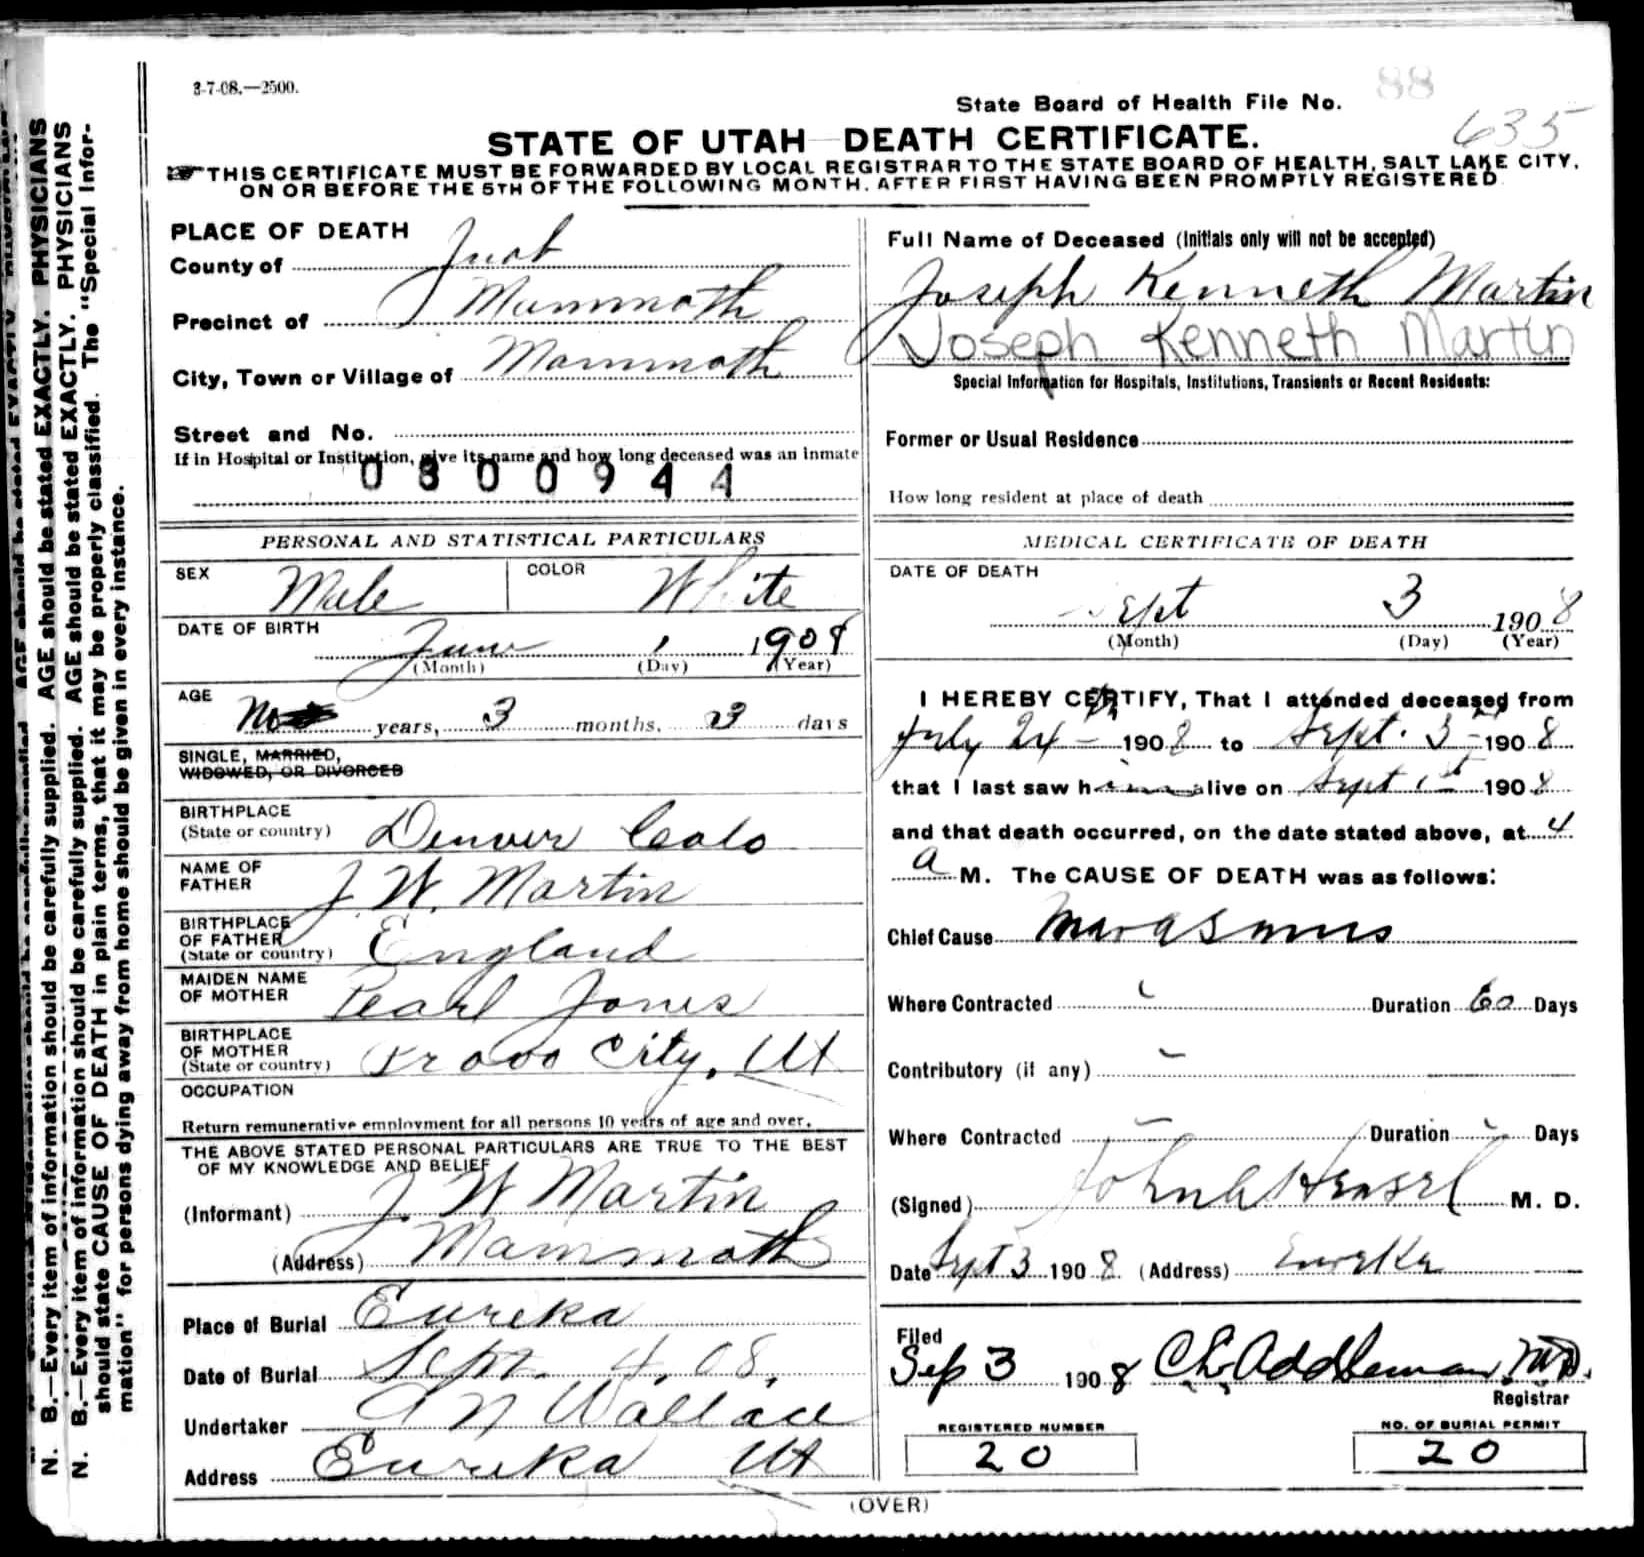 3-7-08.—2500.
88
State Board of Health File No.
635
STATE OF UTAH DEATH CERTIFICATE.
THIS CERTIFICATE MUST BE FORWARDED BY LOCAL REGISTRAR TO THE STATE BOARD OF HEALTH, SALT LAKE CITY,
ON OR BEFORE THE 5TH OF THE FOLLOWING MONTH, AFTER FIRST HAVING BEEN PROMPTLY REGISTERED
N. B.—Every item of information should be carefully supplied. AGE should be stated EXACTLY. PHYSICIANS
N. B.—Every item of information should be carefully supplied. AGE should be stated EXACTLY. PHYSICIANS
should state CAUSE OF DEATH in plain terms, that it may be properly classified. The "Special Infor-
mation" for persons dying away from home should be given in every instance.
PLACE OF DEATH
County of Juab
Precinct of Mammoth
City, Town or Village of Mammoth
Street and No.
If in Hospital or Institution, give its name and how long deceased was an inmate
0300944
PERSONAL AND STATISTICAL PARTICULARS
SEX Male COLOR White
DATE OF BIRTH
June 1 1908
(Month) (Day) (Year)
AGE
No years, 3 months, 3 days
SINGLE, MARRIED,
WIDOWED, OR DIVORCED
BIRTHPLACE
(State or country) Denver Colo
NAME OF
FATHER J. W. Martin
BIRTHPLACE
OF FATHER
(State or country) England
MAIDEN NAME
OF MOTHER Pearl Jones
BIRTHPLACE
OF MOTHER
(State or country) Provo City, Ut
OCCUPATION
Return remunerative employment for all persons 10 years of age and over.
THE ABOVE STATED PERSONAL PARTICULARS ARE TRUE TO THE BEST
OF MY KNOWLEDGE AND BELIEF
(Informant) J. W Martin
(Address) Mammoth
Place of Burial Eureka
Date of Burial Sept. 4, 08.
Undertaker Wallace
Address Eureka Ut
Full Name of Deceased (Initials only will not be accepted)
Joseph Kenneth Martin
Joseph Kenneth Martin
Special Information for Hospitals, Institutions, Transients or Recent Residents:
Former or Usual Residence
How long resident at place of death
MEDICAL CERTIFICATE OF DEATH
DATE OF DEATH
Sept 3 1908
(Month) (Day) (Year)
I HEREBY CERTIFY, That I attended deceased from
July 24th 1908 to Sept. 3 1908
that I last saw him alive on Sept 1st 1908
and that death occurred, on the date stated above, at 4
a M. The CAUSE OF DEATH was as follows:
Chief Cause Marasmus
Where Contracted Duration 60 Days
Contributory (if any)
Where Contracted Duration Days
(Signed) John Hensel M. D.
Date Sept 3 1908 (Address) Eureka
Filed
Sep 3 1908 Addleman, M.D.
Registrar
REGISTERED NUMBER
20
NO. OF BURIAL PERMIT
20
(OVER)